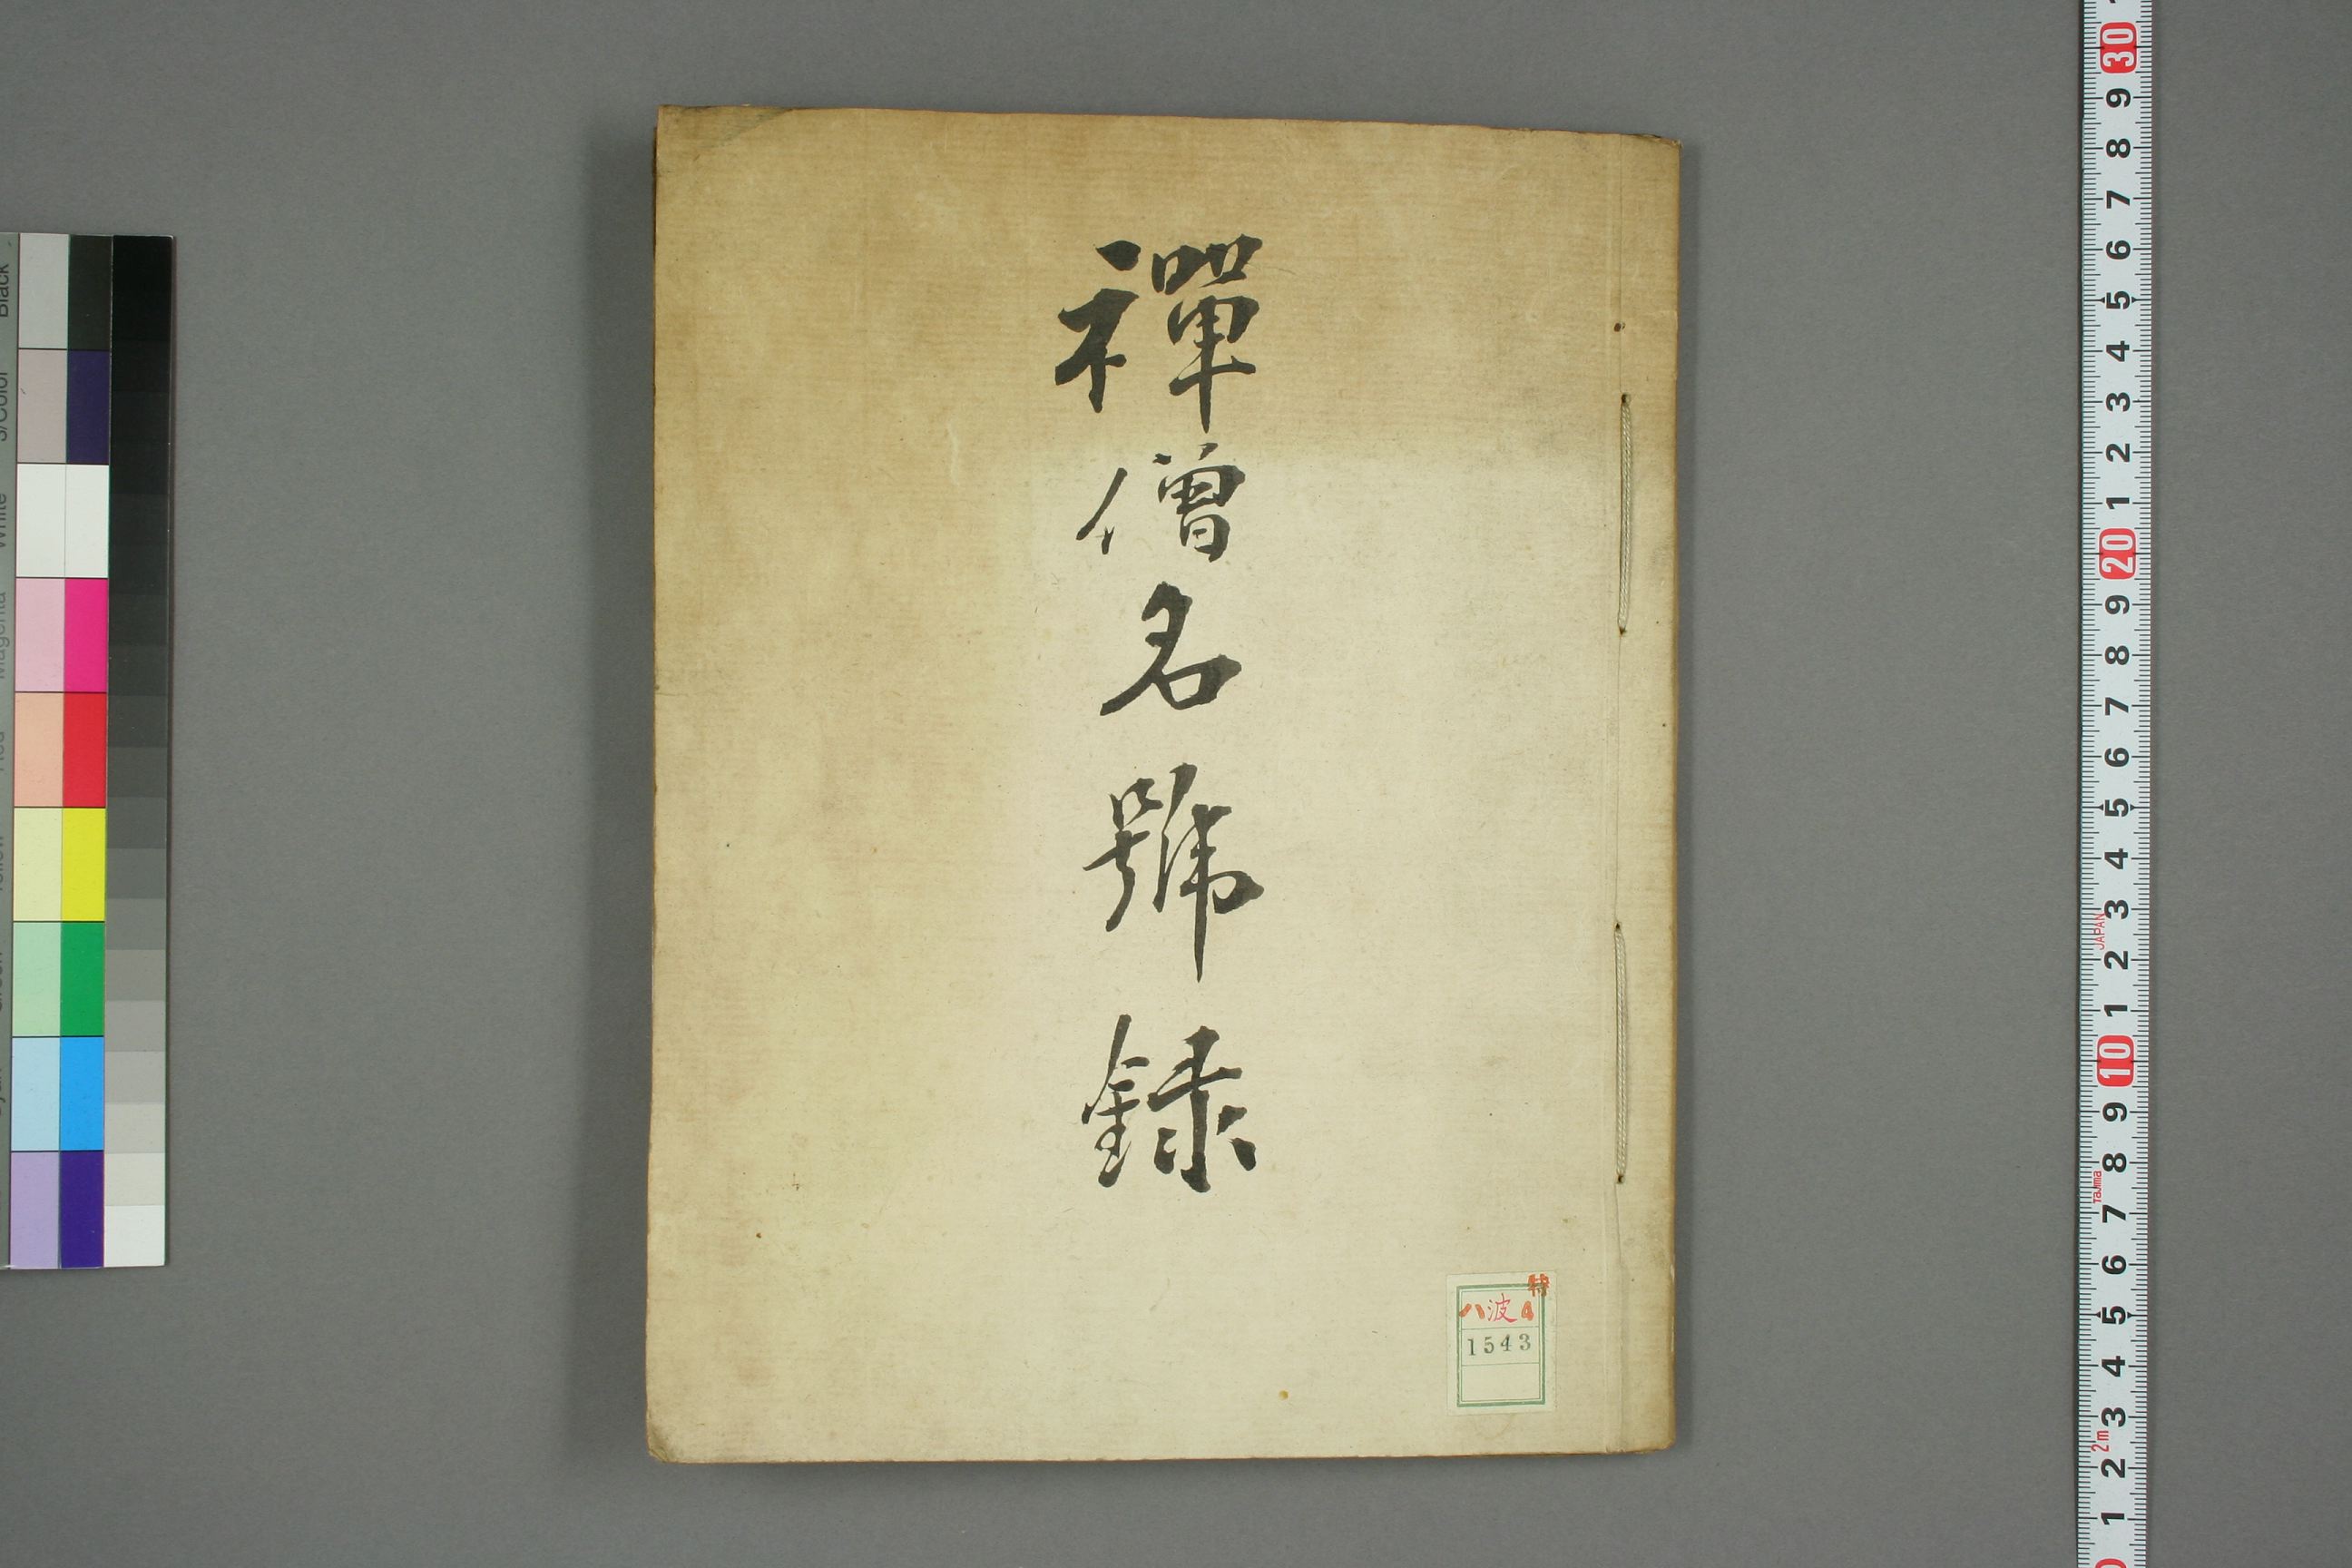 禪僧名號録
特
八波4
1543
30
9
8
7
6
5
4
3
2
1
20
9
8
7
6
5
4
3
JAPAN
2
1
10
9
8
Tajima
7
6
5
4
3
2m
2
1
Black
3/Color
White
Magenta